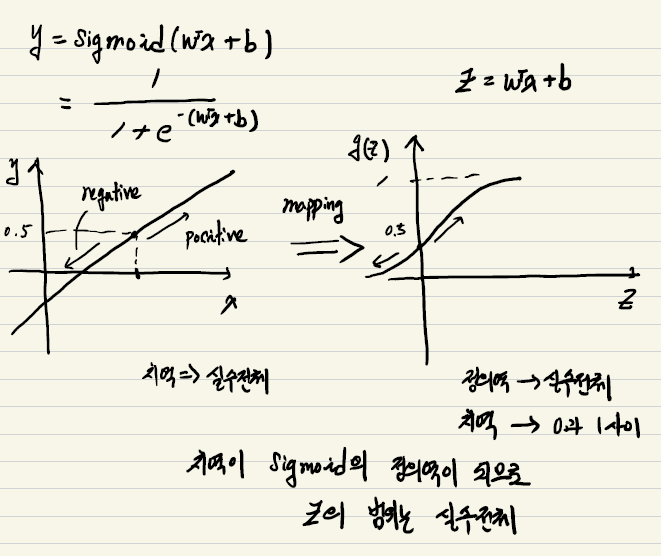 y = Sigmoid(wx + b)
= 1 / 1 + e^-(wx+b)
z = wx + b
y
negative
0.5
positive
x
mapping
g(z)
1
0.5
z
치역 => 실수전체
정의역 → 실수전체
치역 → 0과 1사이
치역이 Sigmoid의 정의역이 되므로
Z의 범위는 실수전체